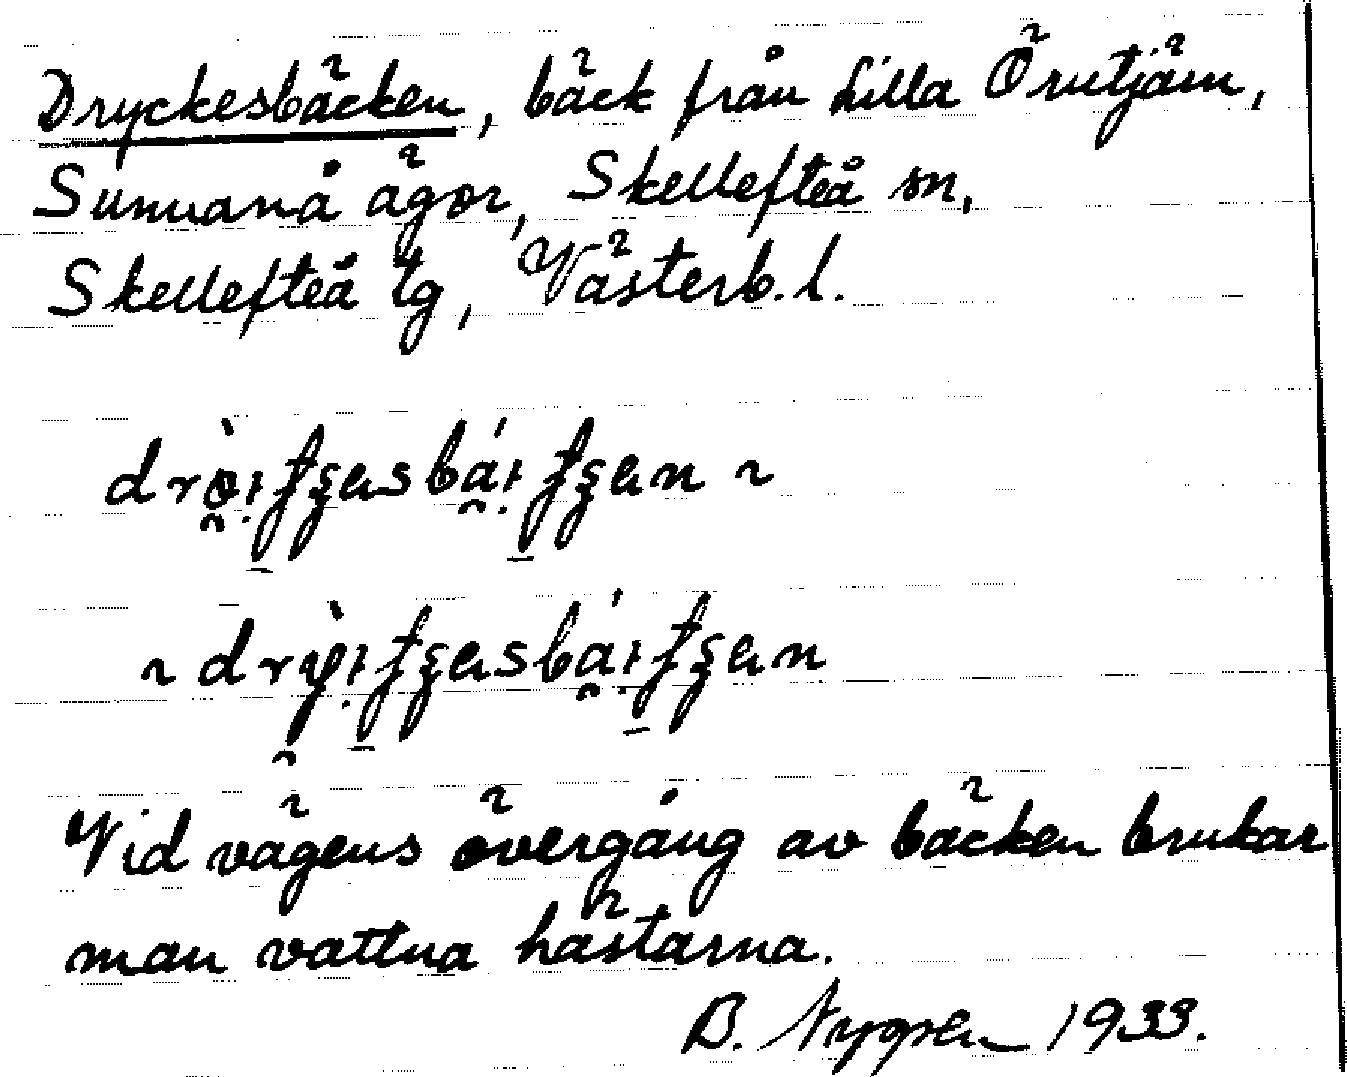 Dryckesbäcken, bäck från Lilla Örutjärn,
Sunnanå ägor, Skellefteå sn,
Skellefteå tg, Västerb. l.
Vid vägens övergång av bäcken brukar
man vattna hästarna.
B. Nygren 1933.